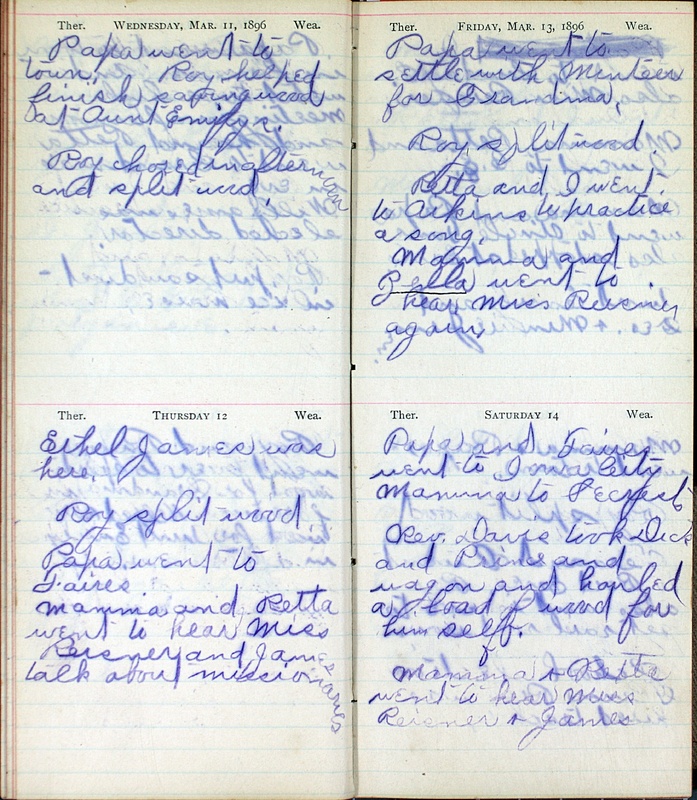 Ther. Wednesday, Mar. 11, 1896 Wea.
Papa went to
town. Roy helped
finish sawing wood
at Aunt Emily's.
Roy chored in afternoon
and split wood.
Ther. Thursday 12 Wea.
Ethel James was
here.
Roy split wood.
Papa went to
Faires
Mamma and Retta
went to hear Miss
Reisner and James
talk about missionaries
Ther. Friday, Mar. 13, 1896 Wea.
Papa went to
settle with Minteer
for Grandma.
Roy split wood.
Retta and I went
to Aikins to practice
a song.
Mamma and
Zella went to
hear Miss Reisner
again.
Ther. Saturday 14 Wea.
Papa and Faires
went to Iowa City
Mamma to Secrest
Rev. Davis took Dick
and Prince and
wagon and hauled
a load of wood for
him self.
Mamma & Retta
went to hear Miss
Reisner & James